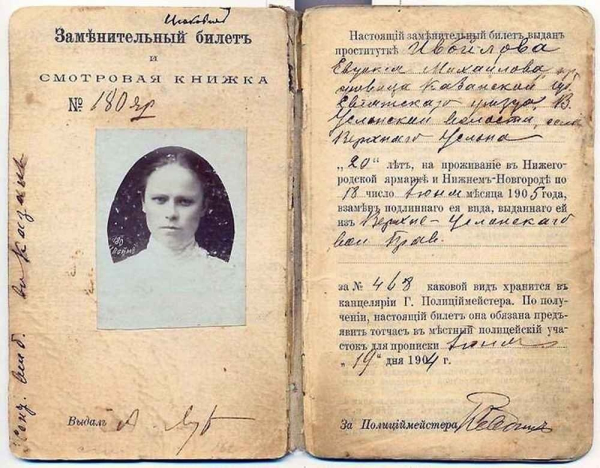 Замѣнительный билетъ
и
СМОТРОВАЯ КНИЖКА
№ 180 яр
Выдалъ
Настоящій замѣнительный билетъ выданъ
проституткѣ Ивойлова
Евдокія Михайлова кр
Казанской губ.
уѣзда, В.
Услонской волости, села
Верхняго Услона
„20“ лѣтъ, на проживаніе въ Нижего-
родской ярмаркѣ и Нижнемъ-Новгородѣ по
18 число Іюня мѣсяца 1905 года,
взамѣнъ подлиннаго ея вида, выданнаго ей
изъ Верхне-Услонскаго
вол Прав.
за № 468 каковой видъ хранится въ
канцеляріи Г. Полиціймейстера. По полу-
ченіи, настоящій билетъ она обязана предъ-
явить тотчасъ въ мѣстный полицейскій уча-
стокъ для прописки Іюня
„19“ дня 1904 г.
За Полиціймейстера